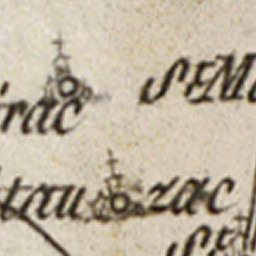 irac St M
tau zac
St